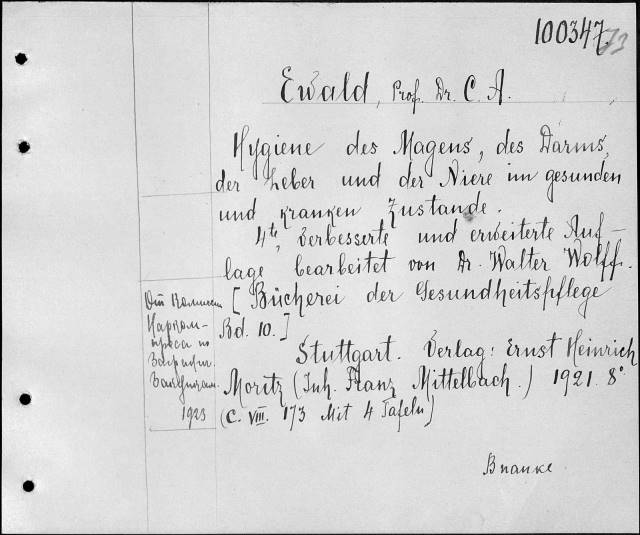 100347
Ewald, Prof. Dr. C. A.
Hygiene des Magens, des Darms,
der Leber und der Niere im gesunden
und kranken Zustande.
4te, verbesserte und erweiterte Auf-
lage bearbeitet von Dr. Walter Wolff.
[Bücherei der Gesundheitspflege
Bd. 10.]
Stuttgart. Verlag: Ernst Heinrich
Moritz (Inh. Franz Mittelbach.) 1921. 8°
(С. VIII. 173 Mit 4 Tafeln)
От Комиссии
Нарком-
проса по
Заграни.
1923
В папке